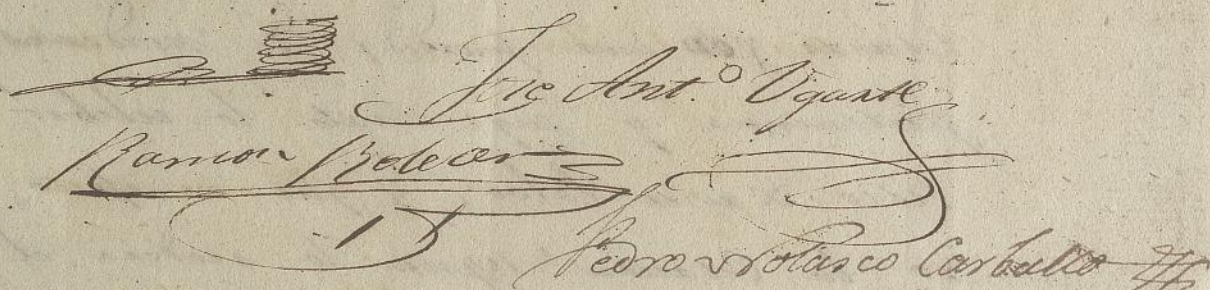 Jose Ant.º Ugarte
Ramon
Pedro Nolasco Carballo